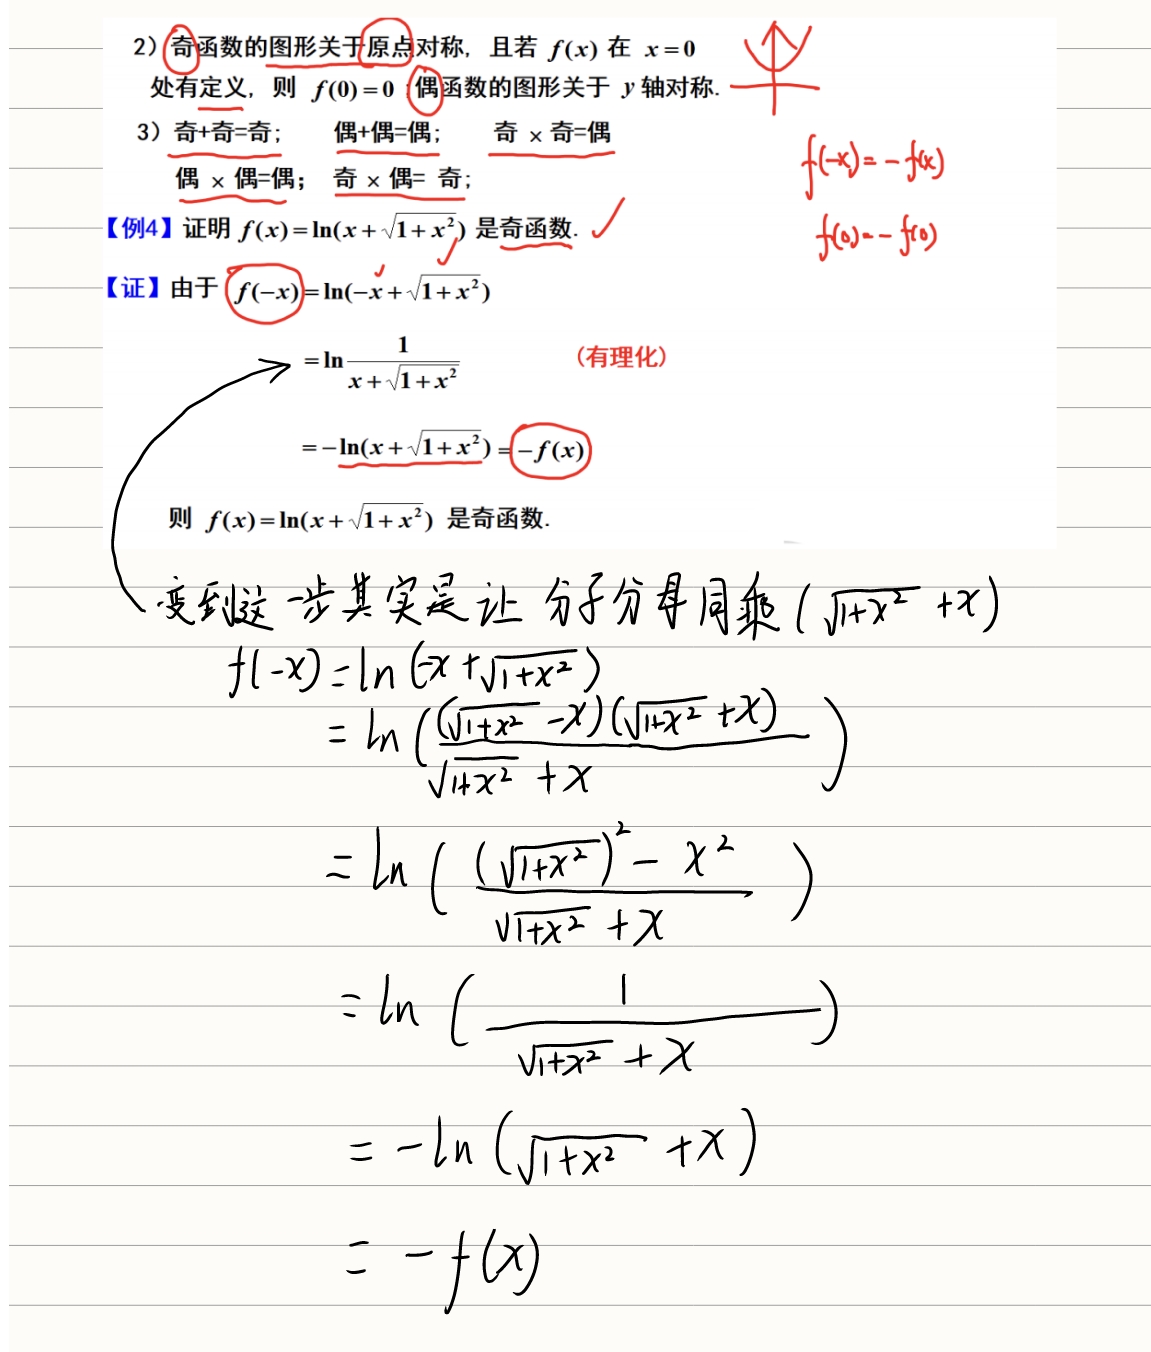 2）奇函数的图形关于原点对称，且若 f(x) 在 x=0
处有定义，则 f(0)=0；偶函数的图形关于 y 轴对称.
3）奇+奇=奇； 偶+偶=偶； 奇 × 奇=偶
偶 × 偶=偶； 奇 × 偶= 奇；
f(-x)=-f(x)
f(0)=-f(0)
【例4】证明 f(x)=ln(x+√(1+x²)) 是奇函数.
【证】由于 f(-x)=ln(-x+√(1+x²))
=ln 1/(x+√(1+x²)) （有理化）
=-ln(x+√(1+x²))=-f(x)
则 f(x)=ln(x+√(1+x²)) 是奇函数.
变到这一步其实是让 分子分母同乘(√(1+x²) +x)
f(-x)=ln(-x+√(1+x²))
=ln((√(1+x²) -x)(√(1+x²) +x)/(√(1+x²) +x))
=ln(((√(1+x²))²-x²)/(√(1+x²) +x))
=ln(1/(√(1+x²) +x))
=-ln(√(1+x²) +x)
=-f(x)